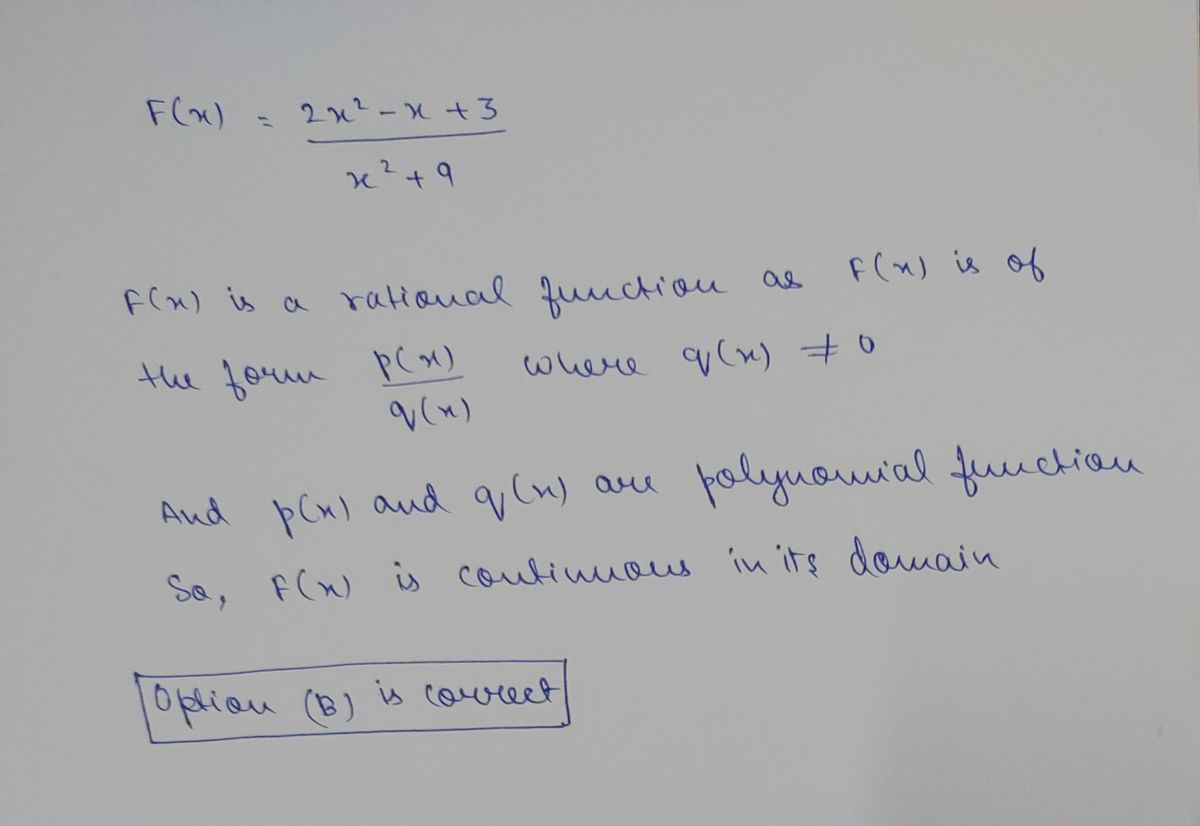 F(x) = 2x² - x + 3
x² + 9
F(x) is a rational function as F(x) is of
the form p(x) where q(x) ≠ 0
q(x)
And p(x) and q(x) are polynomial function
So, F(x) is continuous in its domain
Option (B) is correct